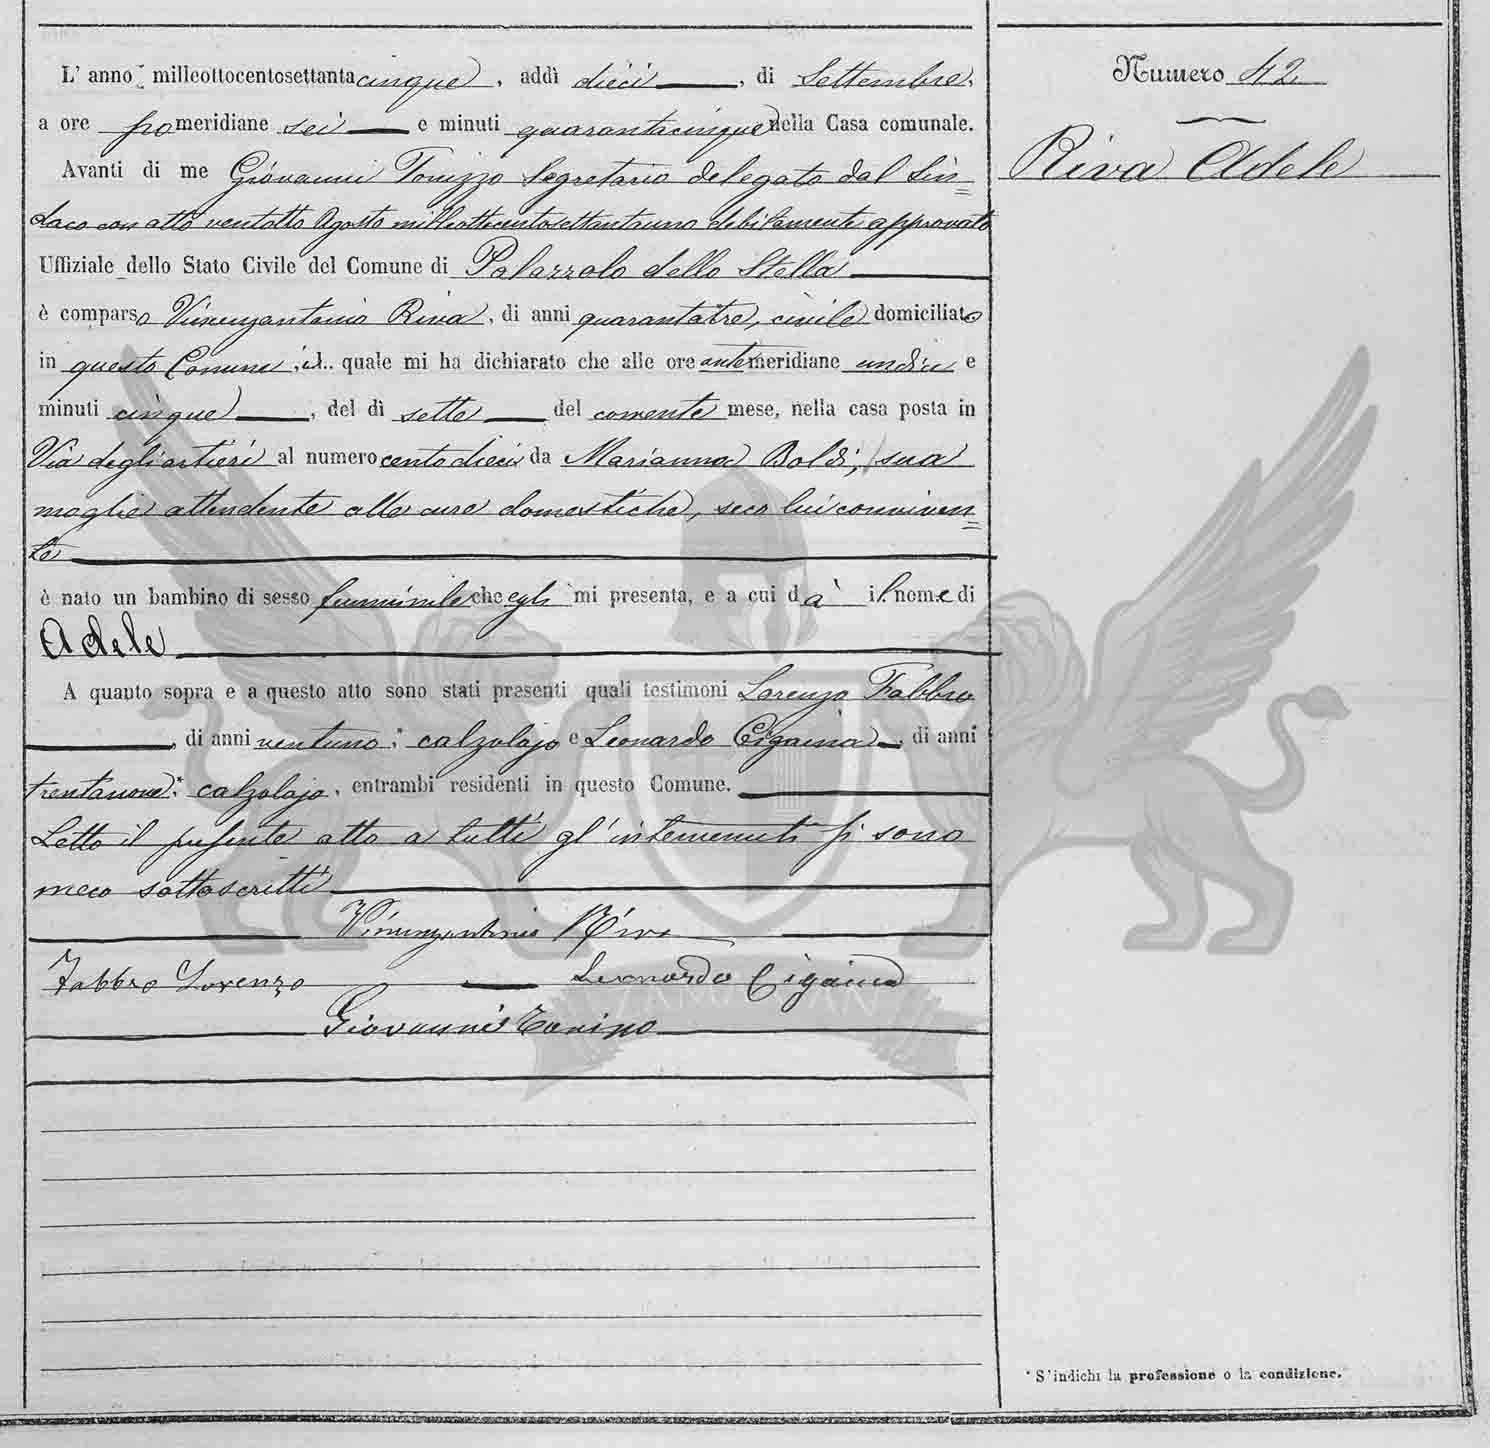 L' anno milleottocentosettanta cinque, addì dieci, di Settembre,
a ore pomeridiane sei e minuti quarantacinque nella Casa comunale.
Avanti di me Giovanni Tonizzo Segretario delegato dal Sin=
daco con atto ventotto Agosto milleottocentosettantauno debitamente approvato
Uffiziale dello Stato Civile del Comune di Palazzolo dello Stella
è comparso Vincenzantonio Riva, di anni quarantatre, civile domiciliato
in questo Comune, il quale mi ha dichiarato che alle ore antemeridiane undici e
minuti cinque, del dì sette del corrente mese, nella casa posta in
Via degli artieri al numero centodieci da Marianna Boldi, sua
moglie attendente alle cure domestiche, seco lui conviven=
te
è nato un bambino di sesso femminile che egli mi presenta, e a cui dà il nome di
Adele
A quanto sopra e a questo atto sono stati presenti quali testimoni Lorenzo Fabbro
, di anni ventuno, * calzolajo e Leonardo Cigaina, di anni
trentanove, * calzolajo, entrambi residenti in questo Comune.
Letto il presente atto a tutti gl' intervenuti si sono
meco sottoscritti
Vincenzantonio Riva
Fabbro Lorenzo Leonardo Cigaina
Giovanni Tonizzo
Numero 42
Riva Adele
* S'indichi la professione o la condizione.